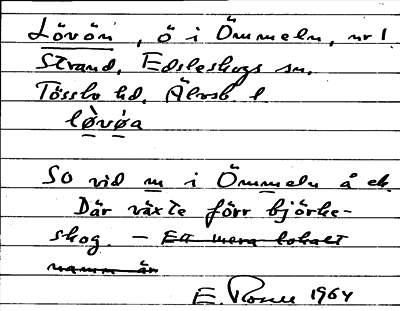 Lövön, ö i Ömmeln, nr 1
Strand, Edsleskogs sn,
Tössbo hd, Älvsb. l.
lø̀vǿa
SO vid m i Ömmeln å ek.
Där växte förr björke-
skog. – Ett mera lokalt
namn är
E. 1964